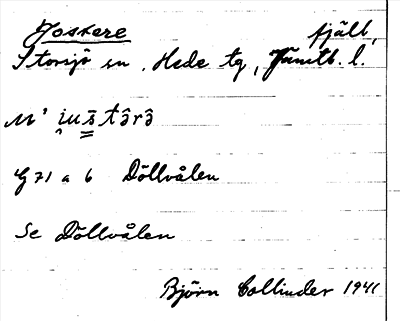 Jostere fjäll,
Storsjö sn. Hede tg, Jämtl. l.
G 71 a 6 Döllvålen
Se Döllvålen
Björn Collinder 1941